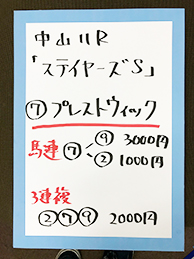 中山11R
「ステイヤーズS」
⑦プレストウィック
馬連⑦<⑨ 3000円
② 1000円
3連複
②⑦⑨ 2000円